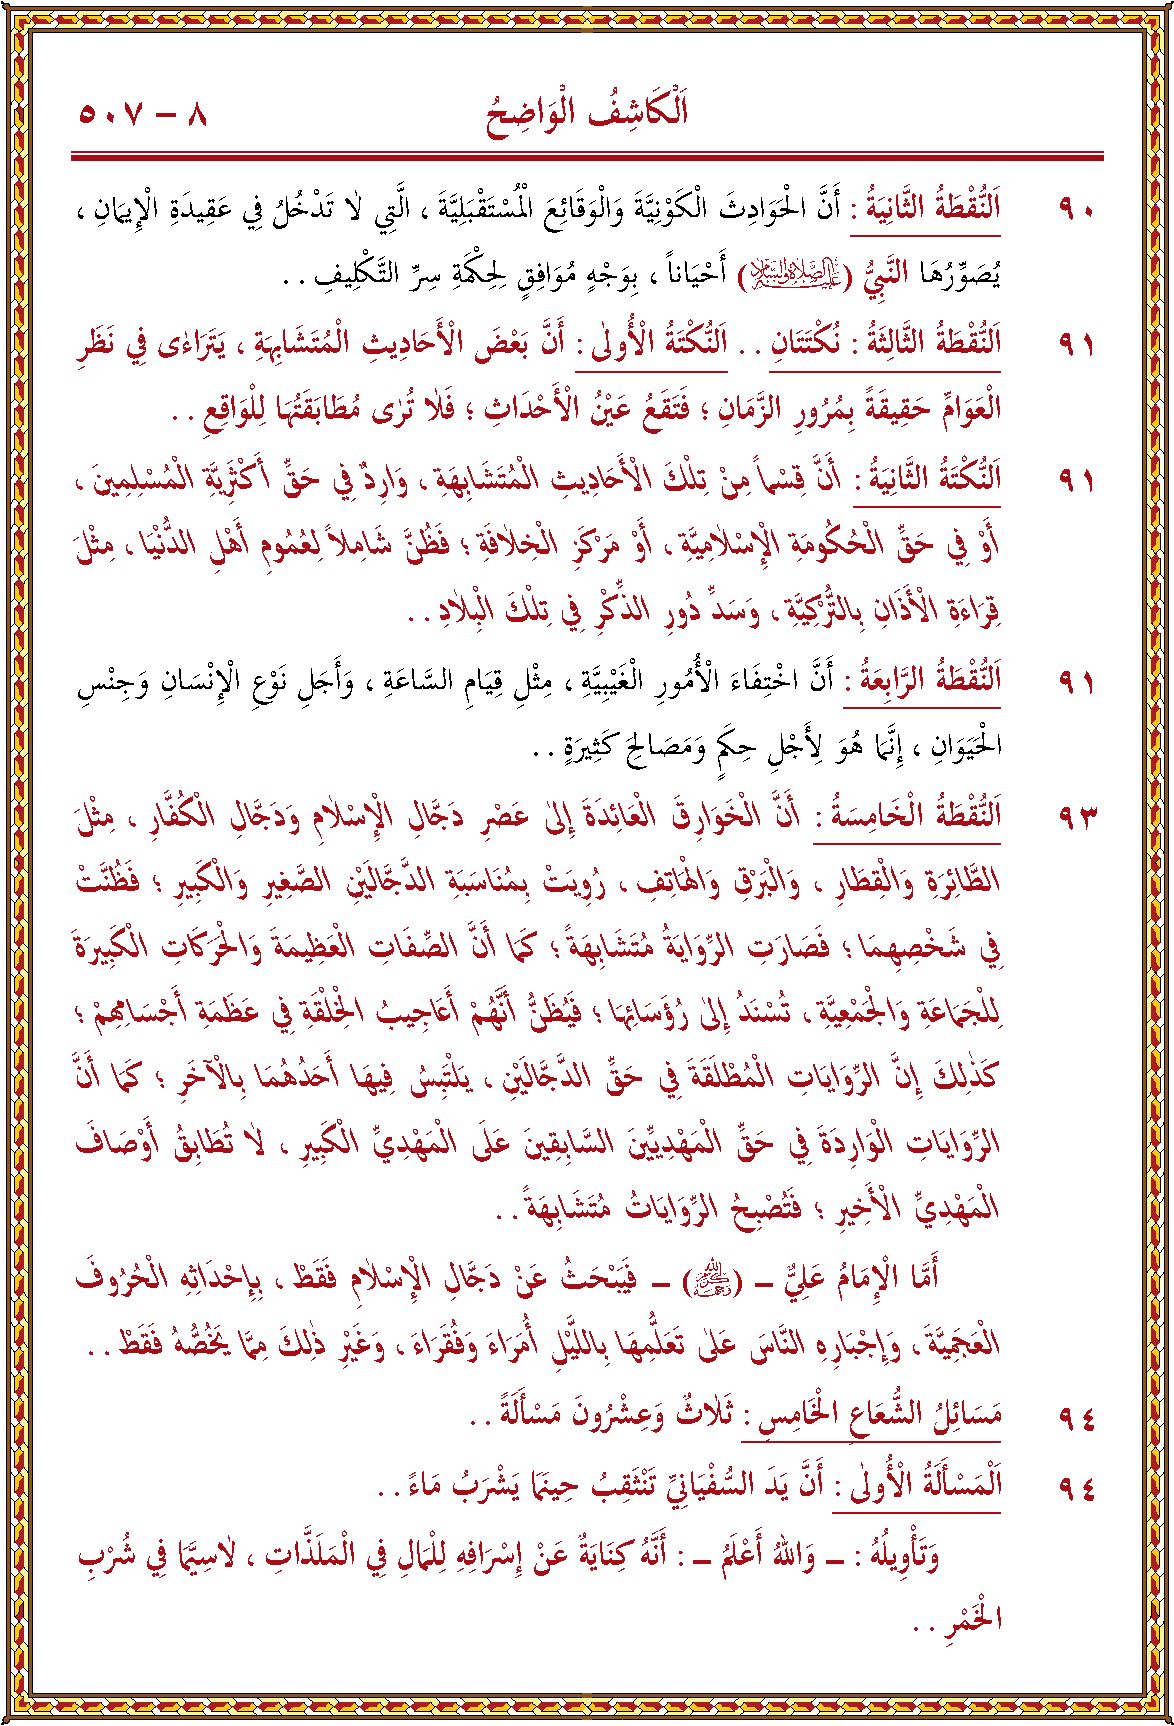 اَلْكَاشِفُ الْوَاضِحُ ٨ – ٥٠٧
٩٠ اَلنُّقْطَةُ الثَّانِيَةُ : أَنَّ الْحَوَادِثَ الْكَوْنِيَّةَ وَالْوَقَائِعَ الْمُسْتَقْبَلِيَّةَ ، الَّتِي لَا تَدْخُلُ فِي عَقِيدَةِ الْإِيمَانِ ،
يُصَوِّرُهَا النَّبِيُّ (عليه الصلاة والسلام) أَحْيَاناً ، بِوَجْهٍ مُوَافِقٍ لِحِكْمَةِ سِرِّ التَّكْلِيفِ . .
٩١ اَلنُّقْطَةُ الثَّالِثَةُ : نُكْتَتَانِ . . اَلنُّكْتَةُ الْأُولٰى : أَنَّ بَعْضَ الْأَحَادِيثِ الْمُتَشَابِهَةِ ، يَتَرَاءٰى فِي نَظَرِ
الْعَوَامِّ حَقِيقَةً بِمُرُورِ الزَّمَانِ ؛ فَتَقَعُ عَيْنُ الْأَحْدَاثِ ؛ فَلَا تُرٰى مُطَابَقَتُهَا لِلْوَاقِعِ . .
٩١ اَلنُّكْتَةُ الثَّانِيَةُ : أَنَّ قِسْماً مِنْ تِلْكَ الْأَحَادِيثِ الْمُتَشَابِهَةِ ، وَارِدٌ فِي حَقِّ أَكْثَرِيَّةِ الْمُسْلِمِينَ ،
أَوْ فِي حَقِّ الْحُكُومَةِ الْإِسْلَامِيَّةِ ، أَوْ مَرْكَزِ الْخِلَافَةِ ؛ فَظُنَّ شَامِلاً لِعُمُومِ أَهْلِ الدُّنْيَا ، مِثْلَ
قِرَاءَةِ الْأَذَانِ بِالتُّرْكِيَّةِ ، وَسَدِّ دُورِ الذِّكْرِ فِي تِلْكَ الْبِلَادِ . .
٩١ اَلنُّقْطَةُ الرَّابِعَةُ : أَنَّ اخْتِفَاءَ الْأُمُورِ الْغَيْبِيَّةِ ، مِثْلِ قِيَامِ السَّاعَةِ ، وَأَجَلِ نَوْعِ الْإِنْسَانِ وَجِنْسِ
الْحَيَوَانِ ، إِنَّمَا هُوَ لِأَجْلِ حِكَمٍ وَمَصَالِحَ كَثِيرَةٍ . .
٩٣ اَلنُّقْطَةُ الْخَامِسَةُ : أَنَّ الْخَوَارِقَ الْعَائِدَةَ إِلٰى عَصْرِ دَجَّالِ الْإِسْلَامِ وَدَجَّالِ الْكُفَّارِ ، مِثْلَ
الطَّائِرَةِ وَالْقِطَارِ ، وَالْبَرْقِ وَالْهَاتِفِ ، رُوِيَتْ بِمُنَاسَبَةِ الدَّجَّالَيْنِ الصَّغِيرِ وَالْكَبِيرِ ؛ فَظُنَّتْ
فِي شَخْصِهِمَا ؛ فَصَارَتِ الرِّوَايَةُ مُتَشَابِهَةً ؛ كَمَا أَنَّ الصِّفَاتِ الْعَظِيمَةَ وَالْحَرَكَاتِ الْكَبِيرَةَ
لِلْجَمَاعَةِ وَالْجَمْعِيَّةِ ، تُسْنَدُ إِلٰى رُؤَسَائِهَا ؛ فَيُظَنُّ أَنَّهُمْ أَعَاجِيبُ الْخِلْقَةِ فِي عَظَمَةِ أَجْسَامِهِمْ ؛
كَذٰلِكَ إِنَّ الرِّوَايَاتِ الْمُطْلَقَةَ فِي حَقِّ الدَّجَّالَيْنِ ، يَلْتَبِسُ فِيهَا أَحَدُهُمَا بِالْآخَرِ ؛ كَمَا أَنَّ
الرِّوَايَاتِ الْوَارِدَةَ فِي حَقِّ الْمَهْدِيِّينَ السَّابِقِينَ عَلَى الْمَهْدِيِّ الْكَبِيرِ ، لَا تُطَابِقُ أَوْصَافَ
الْمَهْدِيِّ الْأَخِيرِ ؛ فَتُصْبِحُ الرِّوَايَاتُ مُتَشَابِهَةً . .
أَمَّا الْإِمَامُ عَلِيٌّ – () – فَيَبْحَثُ عَنْ دَجَّالِ الْإِسْلَامِ فَقَطْ ، بِإِحْدَاثِهِ الْحُرُوفَ
الْعَجَمِيَّةَ ، وَإِجْبَارِهِ النَّاسَ عَلٰى تَعَلُّمِهَا بِاللَّيْلِ أُمَرَاءَ وَفُقَرَاءَ ، وَغَيْرَ ذٰلِكَ مِمَّا يَخُصُّهُ فَقَطْ . .
٩٤ مَسَائِلُ الشُّعَاعِ الْخَامِسِ : ثَلَاثٌ وَعِشْرُونَ مَسْأَلَةً . .
٩٤ اَلْمَسْأَلَةُ الْأُولٰى : أَنَّ يَدَ السُّفْيَانِيِّ تَنْثَقِبُ حِينَمَا يَشْرَبُ مَاءً . .
وَتَأْوِيلُهُ : – وَاللّٰهُ أَعْلَمُ – : أَنَّهُ كِنَايَةٌ عَنْ إِسْرَافِهِ لِلْمَالِ فِي الْمَلَذَّاتِ ، لَاسِيَّمَا فِي شُرْبِ
الْخَمْرِ . .